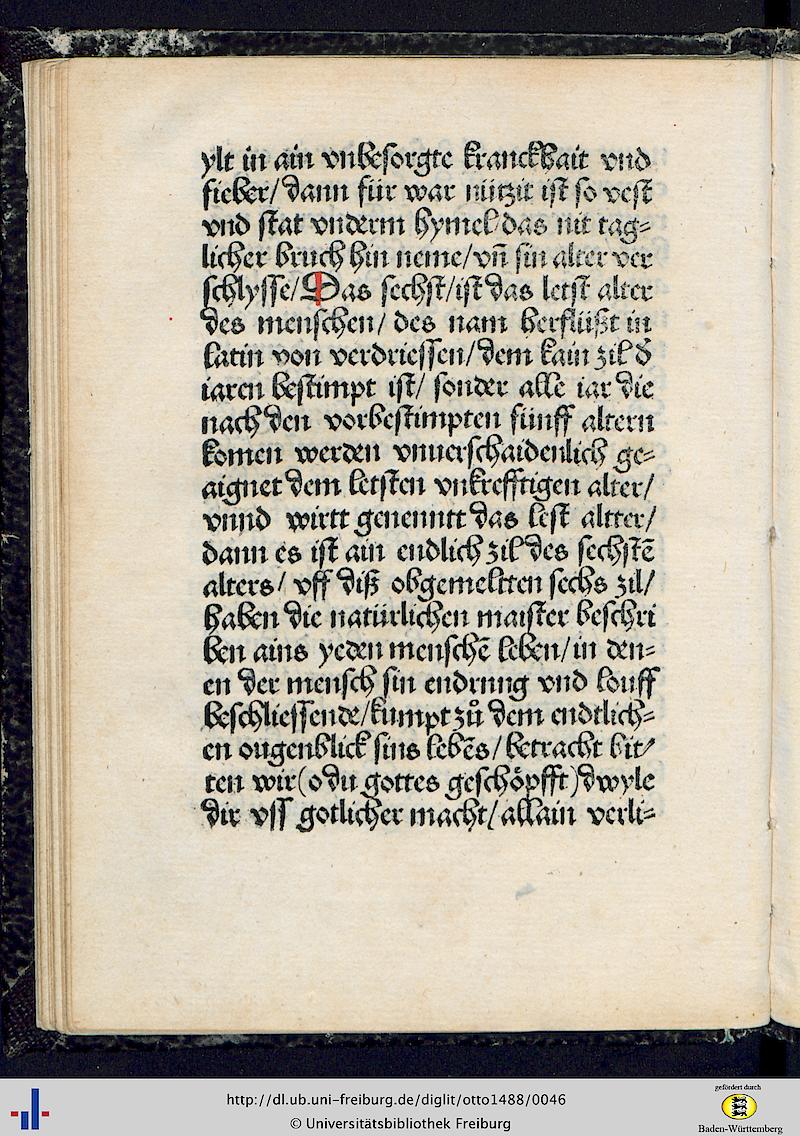 ylt in ain vnbesorgte kranckhait vnd
fieber/ dann für war nützit ist so vest
vnd stat vnderm hymel das nit tag⸗
licher bruch hin neme/ vn̄ sin alter ver
schlysse/ Das sechst/ ist das letst alter
des menschen/ des nam herflüßt in
latin von verdriessen/ dem kain zil d̕
iaren bestimpt ist/ sonder alle iar die
nach den vorbestimpten fünff altern
komen werden vnuerschaidenlich ge⸗
aignet dem letsten vnkrefftigen alter/
vnnd wirtt genenntt das lest altter/
dann es ist ain endlich zil des sechstē
alters/ vff diß obgemeltten sechs zil/
haben die natürlichen maister beschri
ben ains yeden menschē leben/ in den⸗
en der mensch sin endrung vnd louff
beschliessende/ kumpt zů dem endtlich⸗
en ougenblick sins lebēs/ betracht bit⸗
ten wir (o du gottes geschöpfft) dwyle
dir vss gotlicher macht/ allain verli⸗
http://dl.ub.uni-freiburg.de/diglit/otto1488/0046
© Universitätsbibliothek Freiburg
gefördert durch
Baden-Württemberg